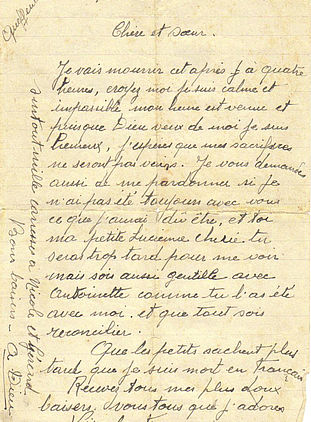 Chère et sœur.
Je vais mourrir cet après j à quatre
heures, croyez moi je suis calme et
impassible mon heure est venue et
puisque Dieu veux de moi je suis
heureux, j'espères que mes sacrifices
ne seront pas vains. Je vous demandes
aussi de me pardonner si je
n'ai pas été toujours avec vous
ce que j'aurai dû être, et toi
ma petite Lucienne chérie, tu
seras trop tard pour me voir
mais sois aussi gentille avec
Antoinette comme tu l'as été
avec moi, et que tout sois
reconcilier.
Que les petits sachent plus
tard que je suis mort en français
Recevez tous mes plus doux
baisers, vous tous que j'adores
surtout mille caresses à Nicole et Gérard
Bons baisers - A Dieu